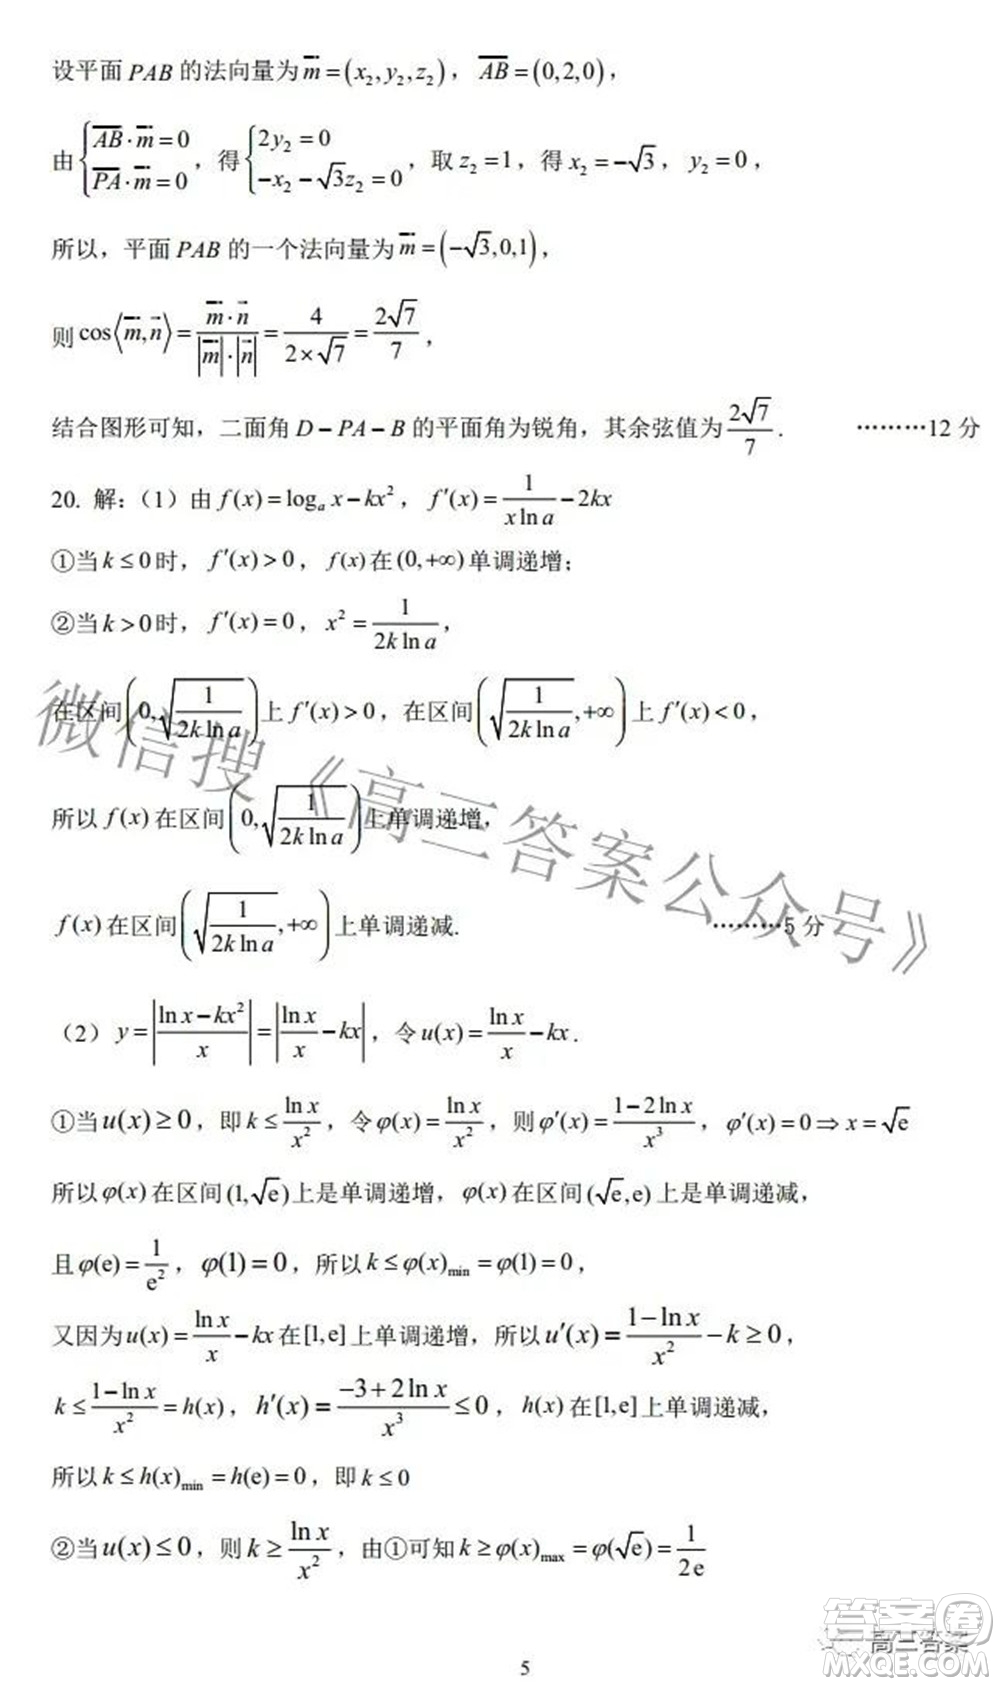 设平面 PAB 的法向量为 m=(x₂,y₂,z₂)，AB=(0,2,0)，
由{AB·m=0 PA·m=0，得{2y₂=0 -x₂-√3z₂=0，取 z₂=1，得 x₂=-√3，y₂=0，
所以，平面 PAB 的一个法向量为 m=(-√3,0,1)，
则 cos⟨m,n⟩=m·n/(|m|·|n|)=4/(2×√7)=2√7/7，
结合图形可知，二面角 D-PA-B 的平面角为锐角，其余弦值为 2√7/7. ………12 分
20. 解：（1）由 f(x)=logₐx-kx²，f′(x)=1/(x ln a)-2kx
①当 k≤0 时，f′(x)>0，f(x)在(0,+∞)单调递增；
②当 k>0 时，f′(x)=0，x²=1/(2k ln a)，
在区间(0,√(1/(2k ln a)))上 f′(x)>0，在区间(√(1/(2k ln a)),+∞)上 f′(x)<0，
所以 f(x)在区间(0,√(1/(2k ln a)))上单调递增，
f(x)在区间(√(1/(2k ln a)),+∞)上单调递减. ………5 分
（2）y=|(ln x-kx²)/x|=|ln x/x-kx|，令 u(x)=ln x/x-kx.
①当 u(x)≥0，即 k≤ln x/x²，令 φ(x)=ln x/x²，则 φ′(x)=(1-2ln x)/x³，φ′(x)=0⇒x=√e
所以 φ(x)在区间(1,√e)上是单调递增，φ(x)在区间(√e,e)上是单调递减，
且 φ(e)=1/e²，φ(1)=0，所以 k≤φ(x)min=φ(1)=0，
又因为 u(x)=ln x/x-kx 在[1,e]上单调递增，所以 u′(x)=(1-ln x)/x²-k≥0，
k≤(1-ln x)/x²=h(x)，h′(x)=(-3+2ln x)/x³≤0，h(x)在[1,e]上单调递减，
所以 k≤h(x)min=h(e)=0，即 k≤0
②当 u(x)≤0，则 k≥ln x/x²，由①可知 k≥φ(x)max=φ(√e)=1/(2e)
5
微信搜《高三答案公众号》
高三答案
答案圈
MXQE.COM